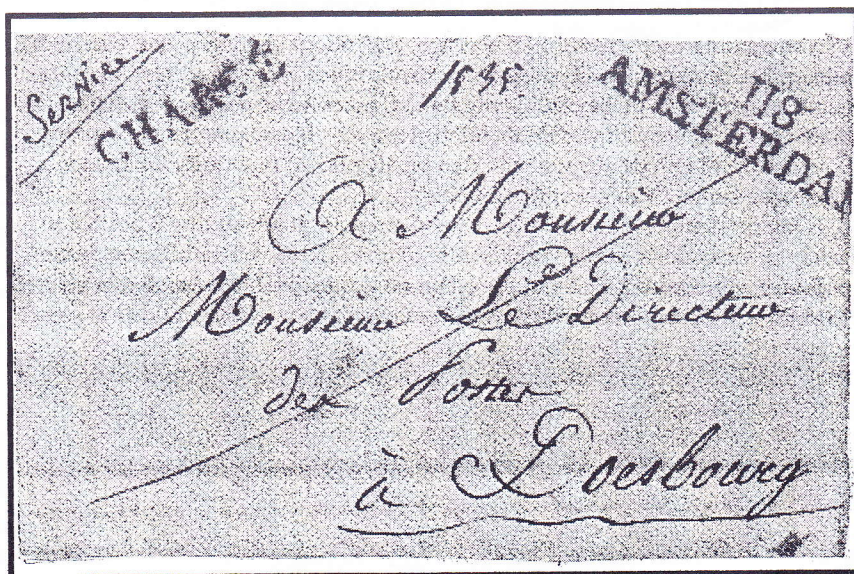 Service
CHARGÉ
1535
118
AMSTERDAM
A Monsieur
Monsieur Le Directeur
des Postes
à Doesbourg